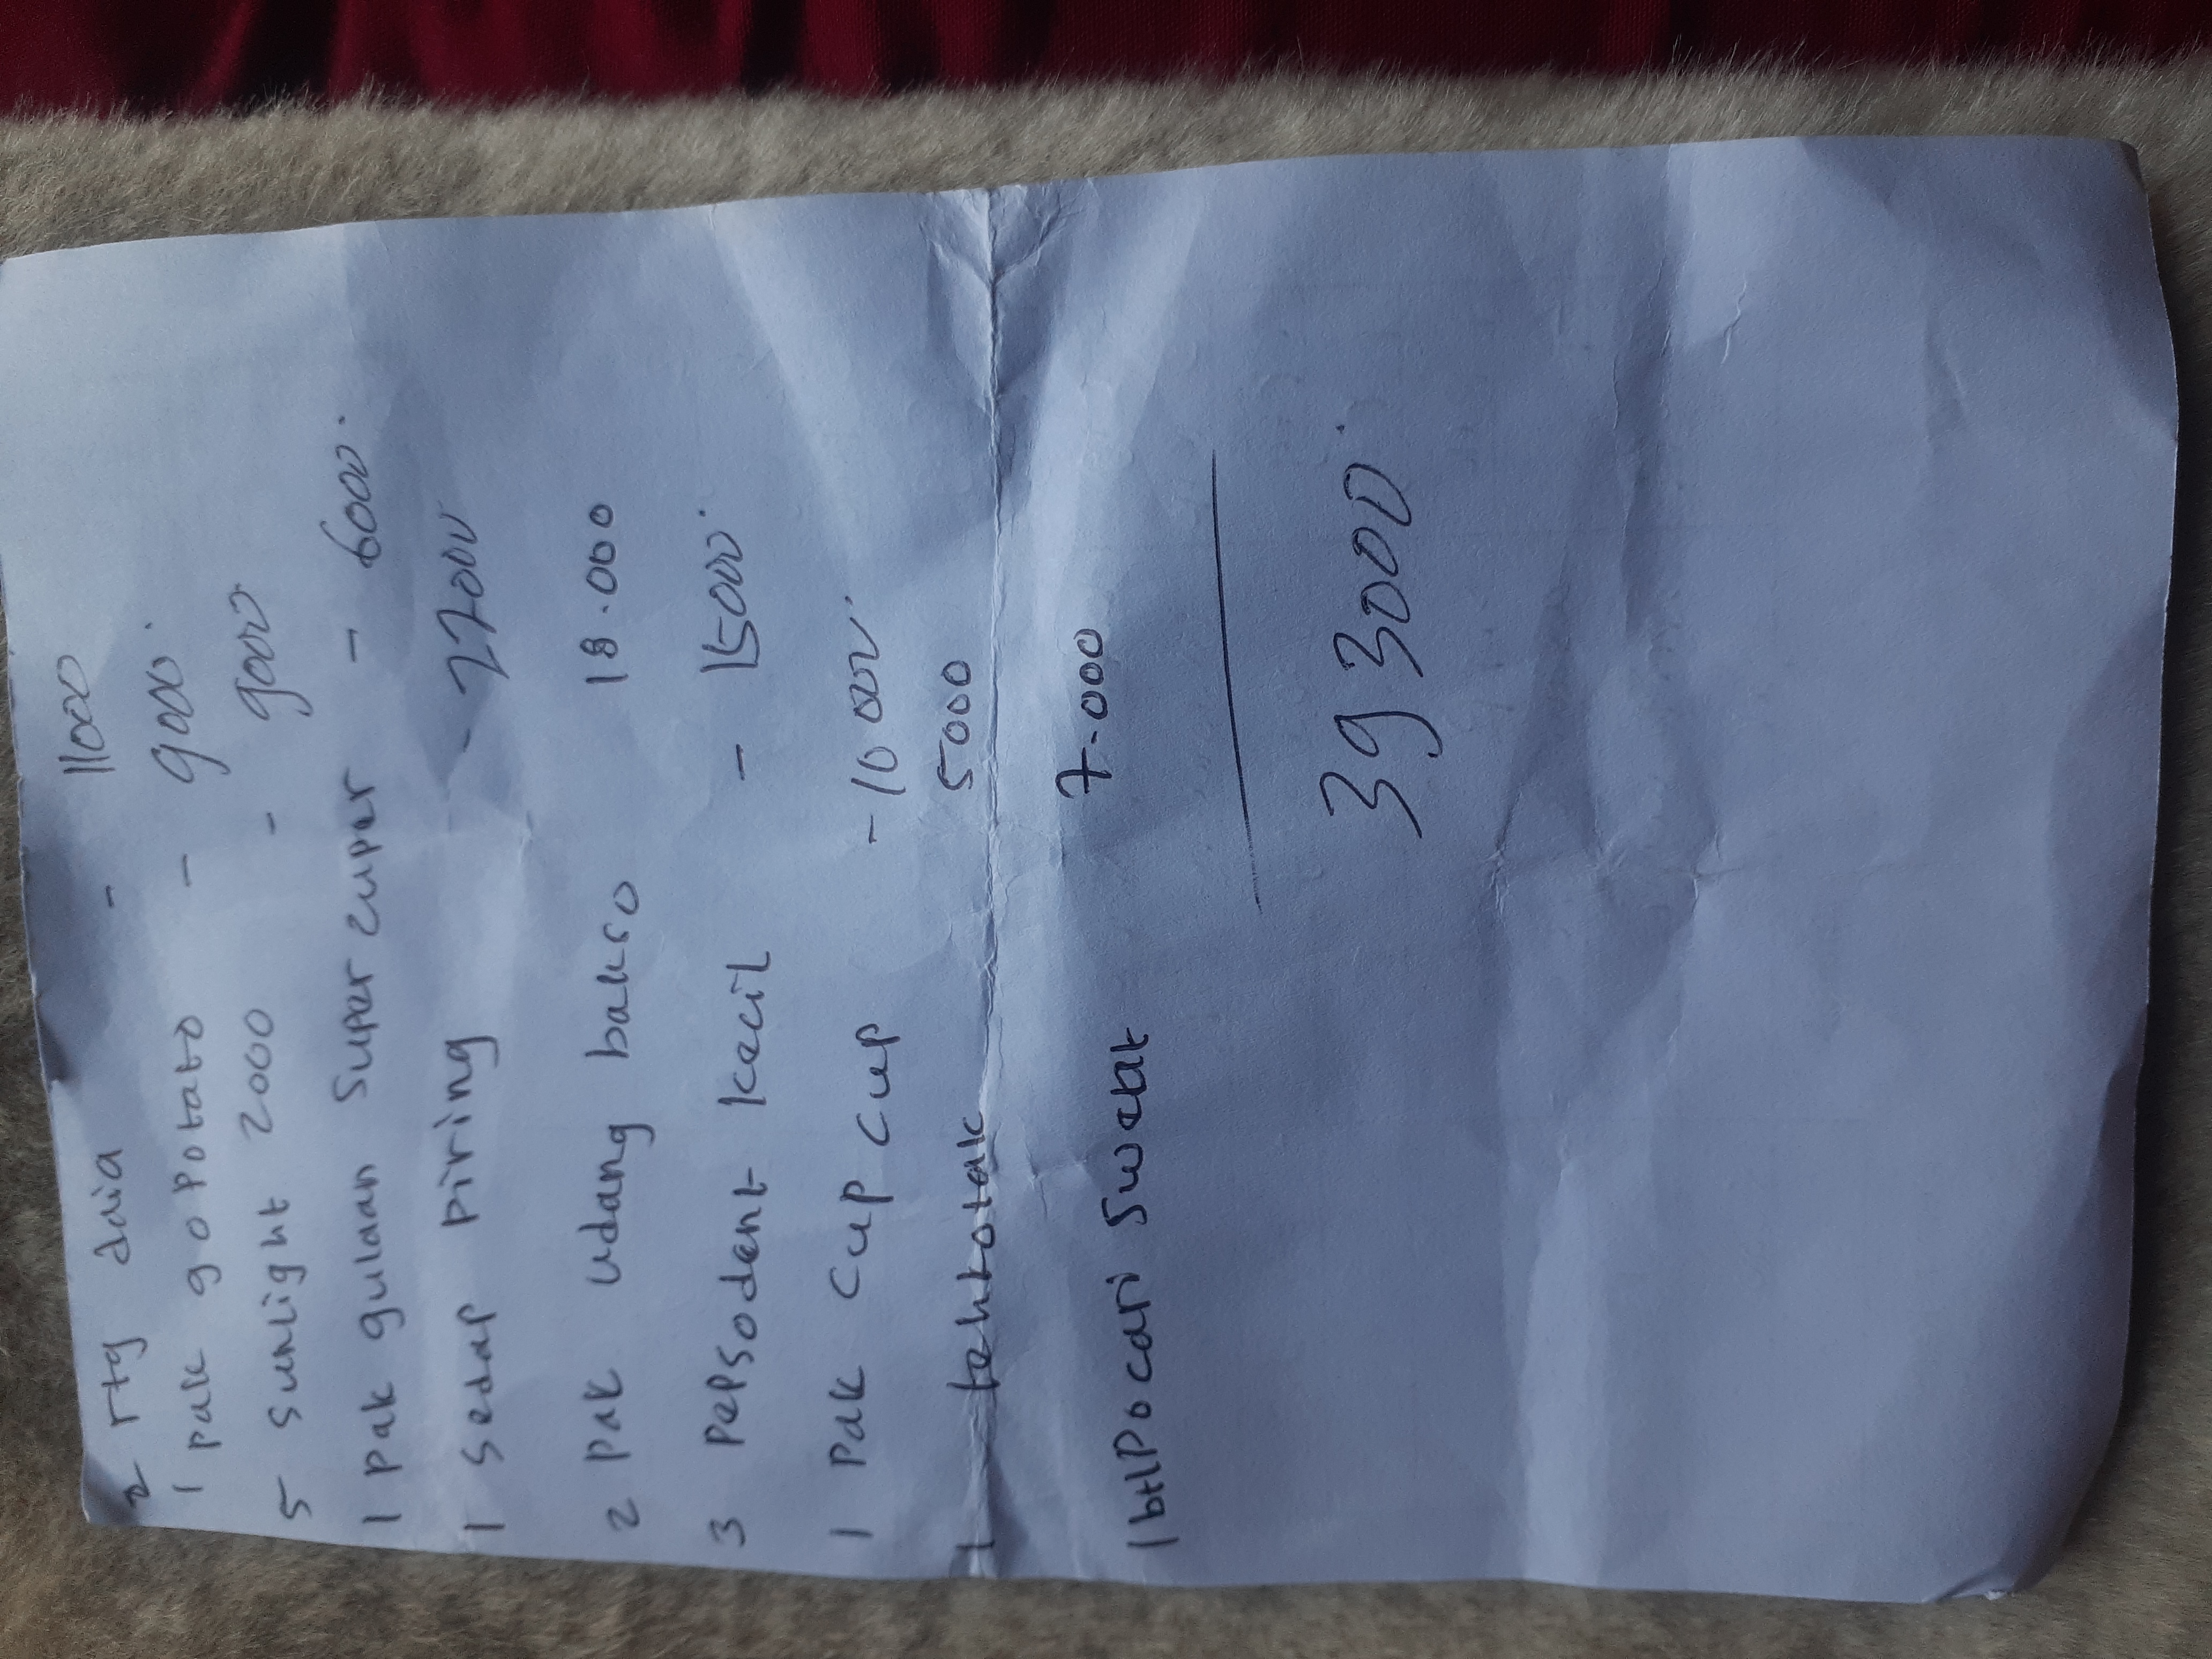 2 rtg daia - 11000
1 pak go potato - 9000.
5 sunlight 2000 - 9000
1 pak gulaan super zuper - 6000.
1 sedap piring - 27000
2 pak udang bakso 18.000
3 pepsodent kecil - 15000.
1 pak cup cup - 10000.
1 tehkotak 5000
1 btl Pocari Sweat 7.000
393000.